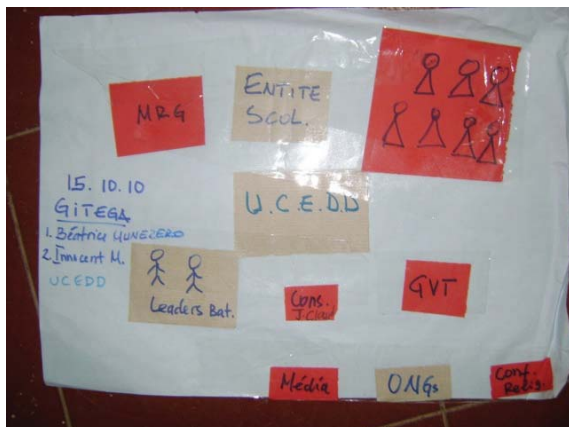 MRG
ENTITE
SCOL.
15.10.10
GITEGA
1. Béatrice MUNEZERO
2. Innocent M.
UCEDD
U.C.E.DD
Leaders Bat.
Cons.
GVT
Média
ONGs
Conf.
Relig.